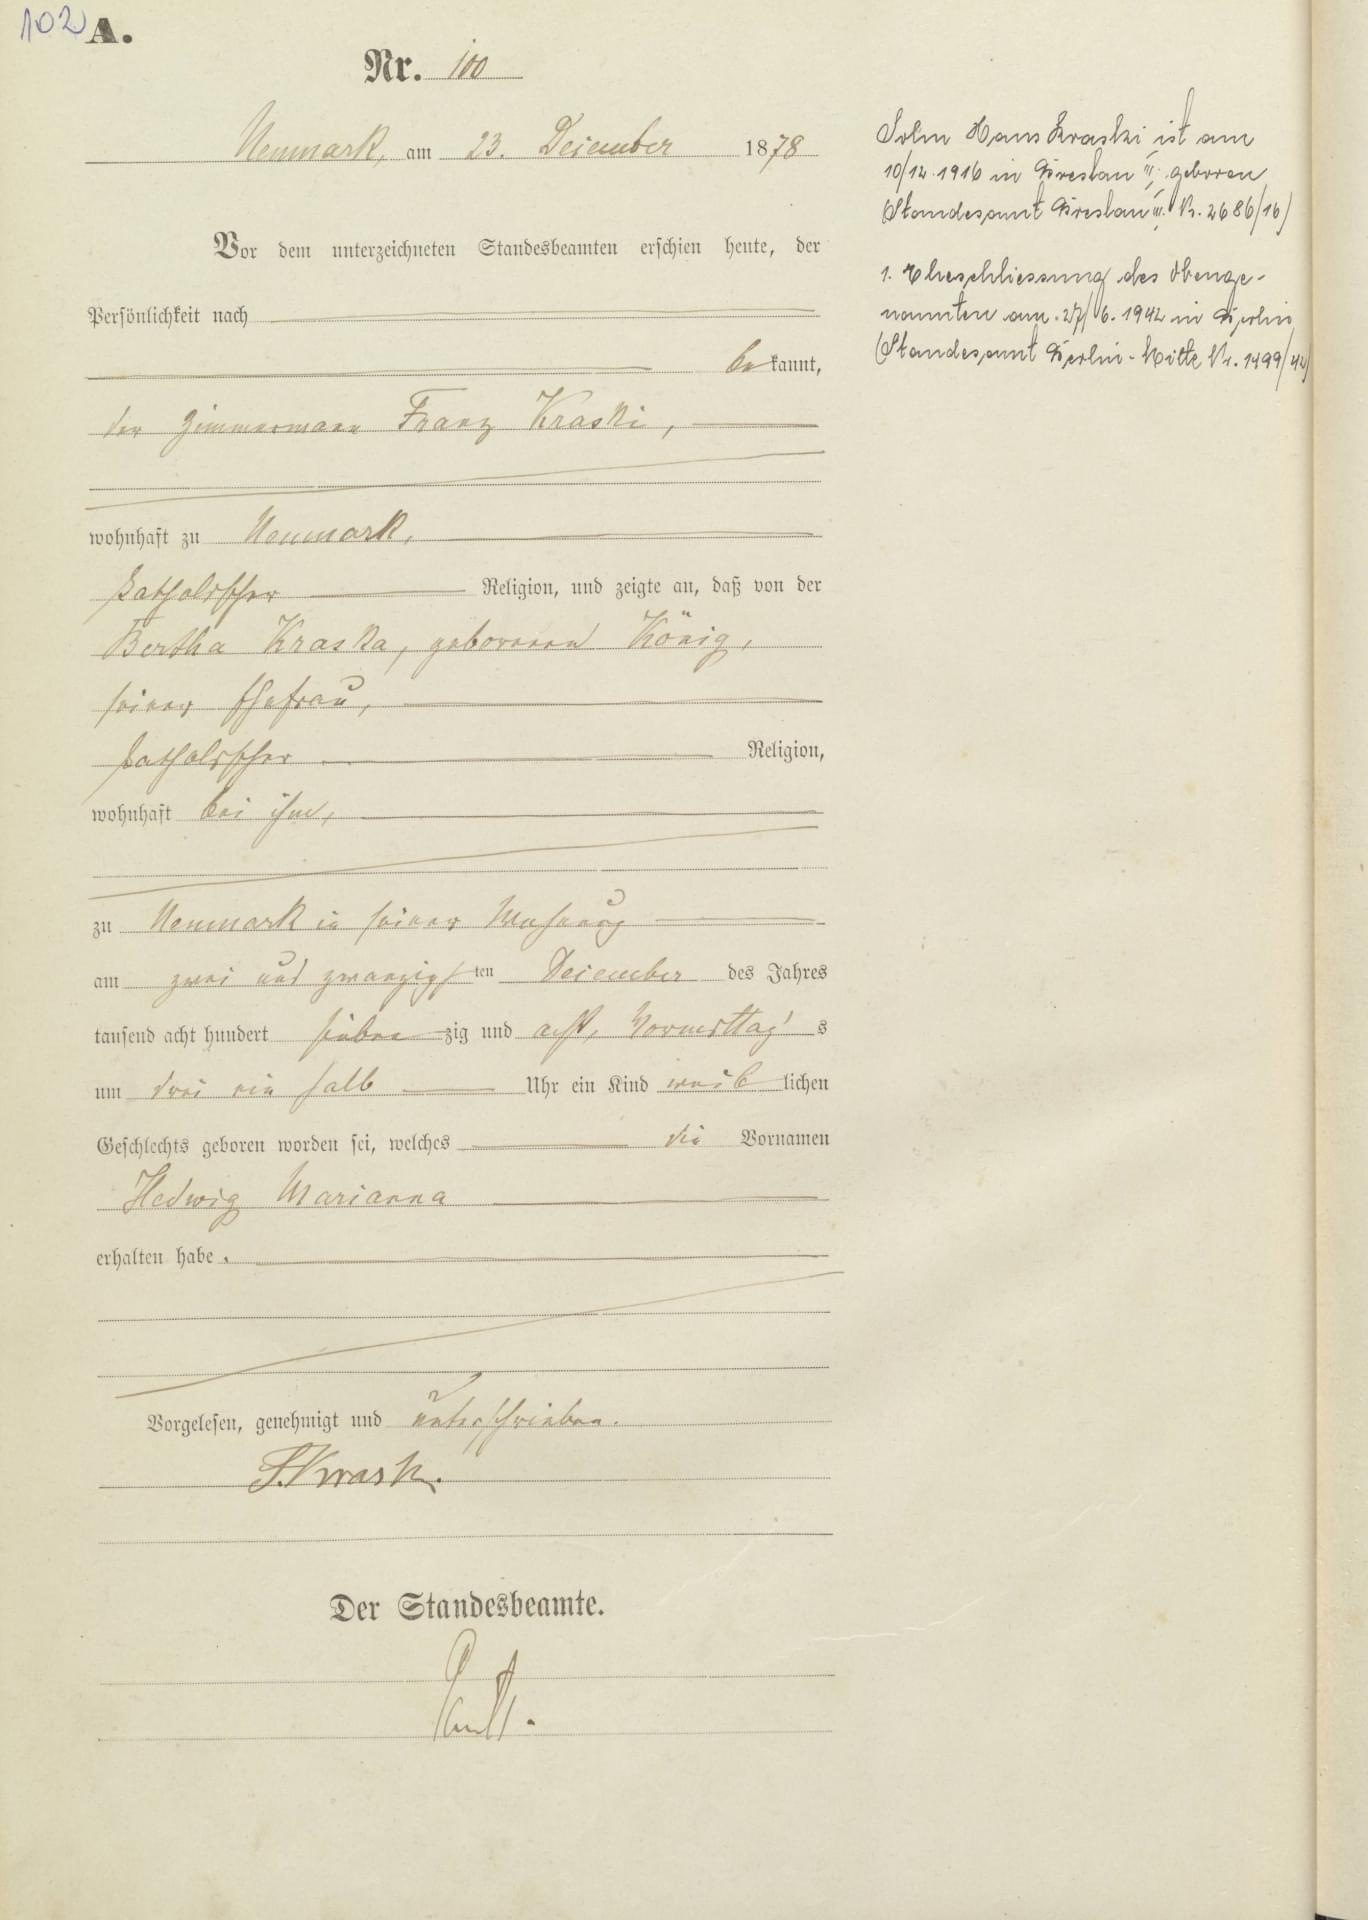 102 A.
Nr. 100
Neumark, am 23. Dezember 1878
Vor dem unterzeichneten Standesbeamten erschien heute, der
Persönlichkeit nach
bekannt,
der Zimmermann Franz Kraski,
wohnhaft zu Neumark,
katholischer Religion, und zeigte an, daß von der
Bertha Kraska, geborenen König,
seiner Ehefrau,
katholischer Religion,
wohnhaft bei ihm,
zu Neumark in seiner Wohnung
am zwei und zwanzigsten Dezember des Jahres
tausend acht hundert siebenzig und acht, Vormittags
um drei ein halb Uhr ein Kind weiblichen
Geschlechts geboren worden sei, welches die Vornamen
Hedwig Marianna
erhalten habe.
Vorgelesen, genehmigt und unterschrieben.
F. Krask.
Der Standesbeamte.
Sohn Hans Kraski ist am
10/12.1916 in Breslau III. geboren
(Standesamt Breslau III. Nr. 2686/16)
1. Eheschliessung des Obenge-
nannten am 27/6.1942 in Berlin
(Standesamt Berlin-Mitte Nr. 1499/42)